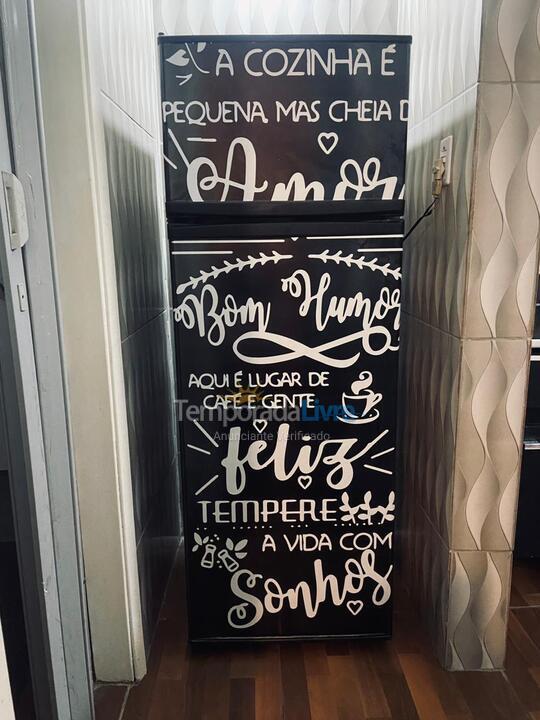 A COZINHA É
PEQUENA, MAS CHEIA D
Amor
Bom Humor
AQUI É LUGAR DE
CAFÉ E GENTE
TemporadaLivre
Anunciante Verificado
feliz
TEMPERE
A VIDA COM
Sonhos